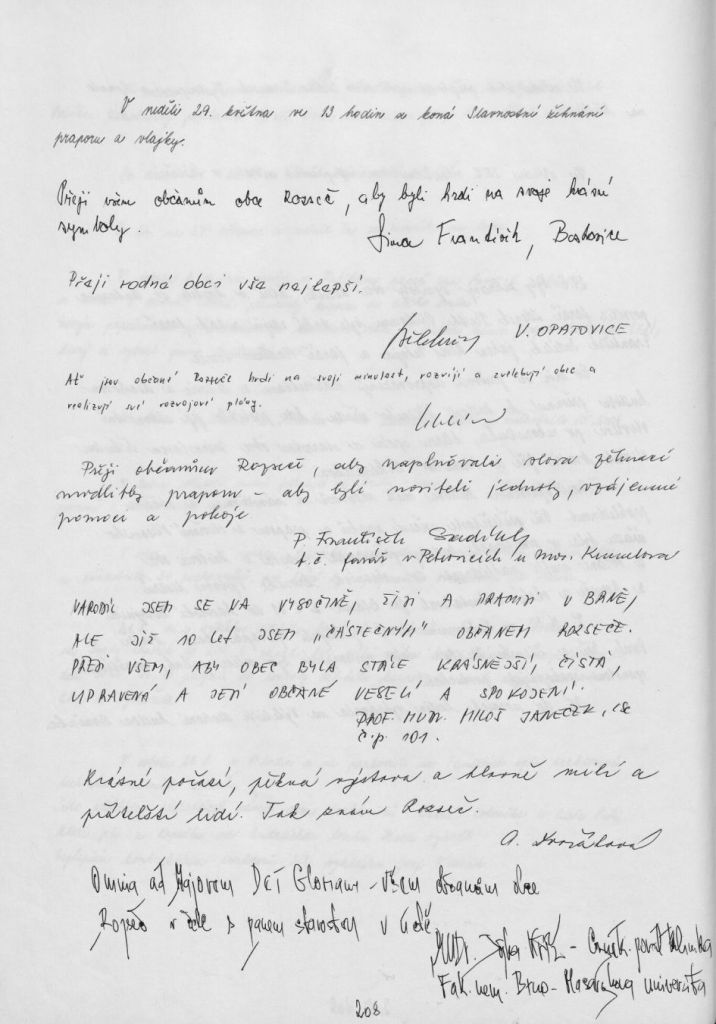 V neděli 29. května ve 13 hodin a koná Slavnostní žehnání
praporu a vlajky.
Přeji všem občanům obce Rozseče, aby byli hrdi na svoje krásné
symboly. Sima František, Boskovice
Přeji rodné obci vše nejlepší.
V. OPATOVICE
Ať jsou občané Rozseče hrdi na svoji minulost, rozvíjí a zvelebují obec a
realizují své rozvojové plány.
Přeji občanům Rozseče, aby naplňovali slova žehnací
modlitby praporu – aby byli nositeli jednoty, vzájemné
pomoci a pokoje
P. František
t.č. farář v Petrovicích u Mor. Krumlova
NARODIL JSEM SE NA VYSOČINĚ, ŽIJI A PRACUJI V BRNĚ,
ALE JIŽ 10 let JSEM „ČÁSTEČNÝM" OBČANEM ROZSEČE.
PŘEJI VŠEM, ABY OBEC BYLA STÁLE KRÁSNĚJŠÍ, ČISTÁ,
UPRAVENÁ A JEJÍ OBČANÉ VESELÍ A SPOKOJENÍ.
PROF. MUDR. MILOŠ JANEČEK, CSc
č.p. 101.
Krásné počasí, pěkná výstava a hlavně milí a
přátelští lidí. Tak znám Rozseč.
A. Dvořáková
Omnia ad Majorem Dei Gloriam – všem občanům obce
Rozseč v čele s panem starostou v úctě
MUDr. Kříž –
Fak. nem. Brno – Masarykova univerzita
208